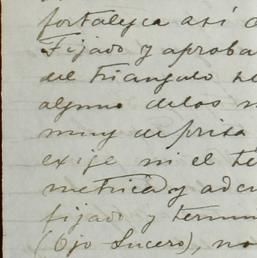 fortalezca así
Fijado y aproba
del triangulo se
alguno delos
muy de prisa
exige ni el te
metrica y ade
fijado y termi
(Ojo Lucero), no